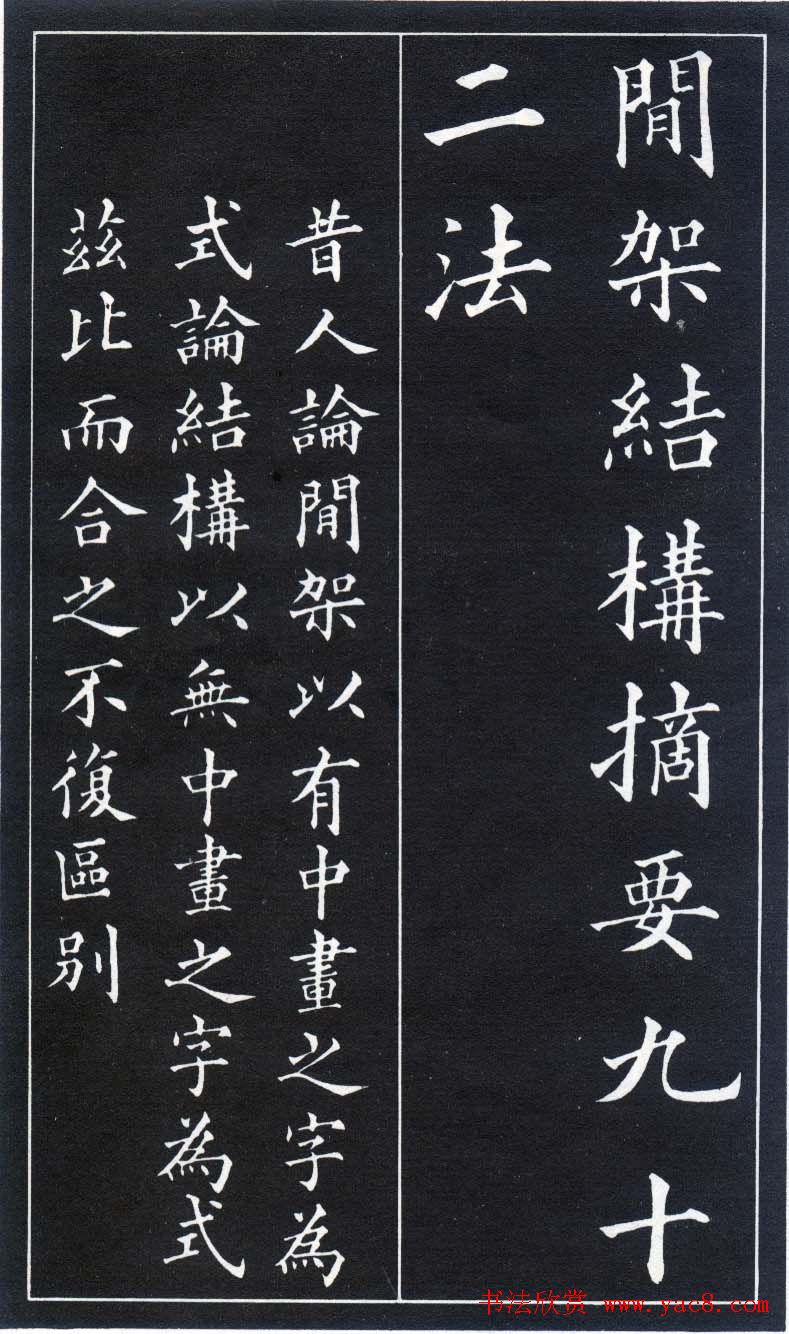 間架結構摘要九十
二法
昔人論間架以有中畫之字為
式論結構以無中畫之字為式
茲比而合之不復區別
书法欣赏 www.yac8.com